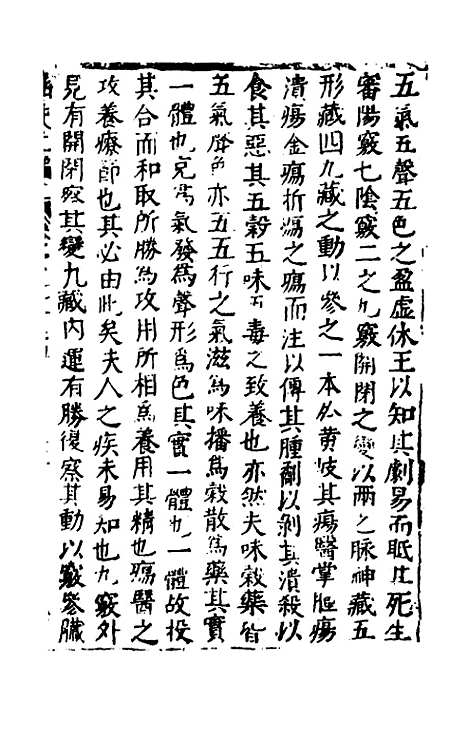 五氣五聲五色之盈虛休王以知其劇易而眂其死生
審陽竅七陰竅二之九竅開閉之變以兩之脉神藏五
形藏四九藏之動以參之一本於黄岐其瘍醫掌腫瘍
潰瘍金瘍折瘍之瘍而注以傅其腫劀以剥其潰殺以
食其惡其五穀五味五毒之致養也亦然夫味穀藥皆
五氣聲色亦五五行之氣滋為味播為穀散為藥其實
一體也充為氣發為聲形為色其實一體也一體故投
其合而和取所勝為攻用所相為養用其精也瘍醫之
攻養療節也其必由此矣夫人之疾未易知也九竅外
見有開閉察其變九藏内運有勝復察其動以竅參臟